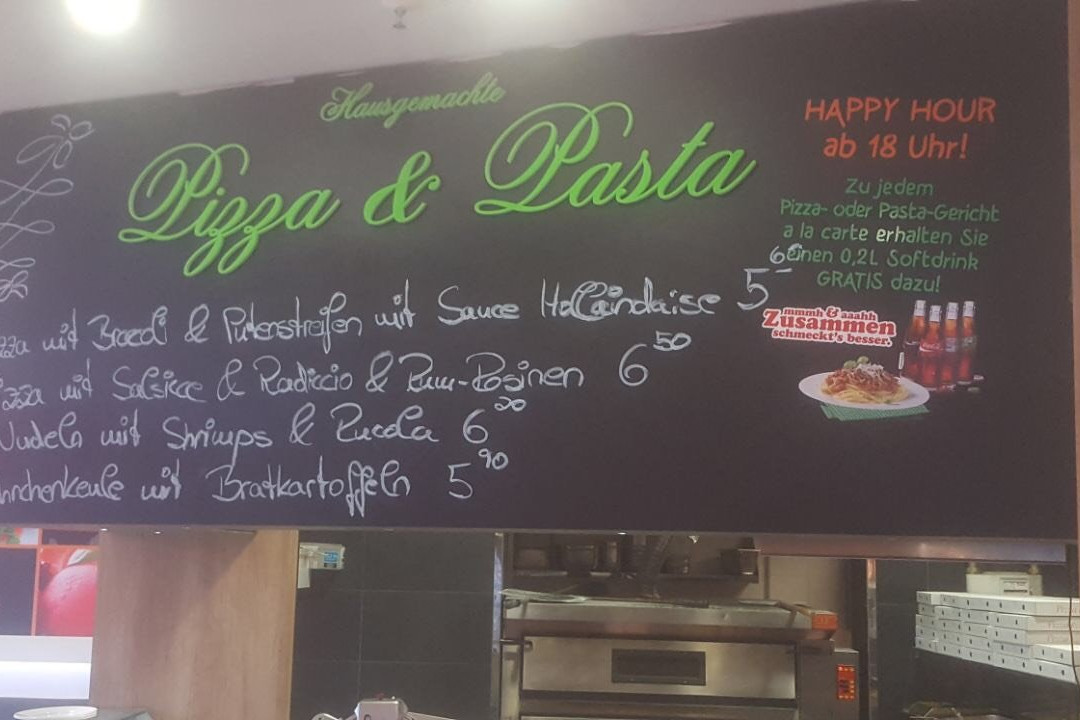 Hausgemachte
Pizza & Pasta
mit Broccoli & Putenstreifen mit Sauce Hollaindaise 5
mit Salsicce & Radiccio & Rum-Rosinen 6 50
Nudeln mit Shrimps & Rucola 6 20
hnchenkeule mit Bratkartoffeln 5 90
HAPPY HOUR
ab 18 Uhr!
Zu jedem
Pizza- oder Pasta-Gericht
a la carte erhalten Sie
einen 0,2L Softdrink
GRATIS dazu!
mmmh & aaahh
Zusammen
schmeckt's besser.